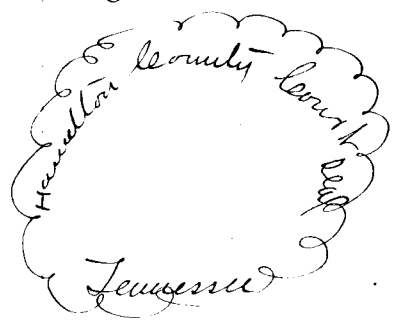 Hamilton County Court Seal
Tennessee